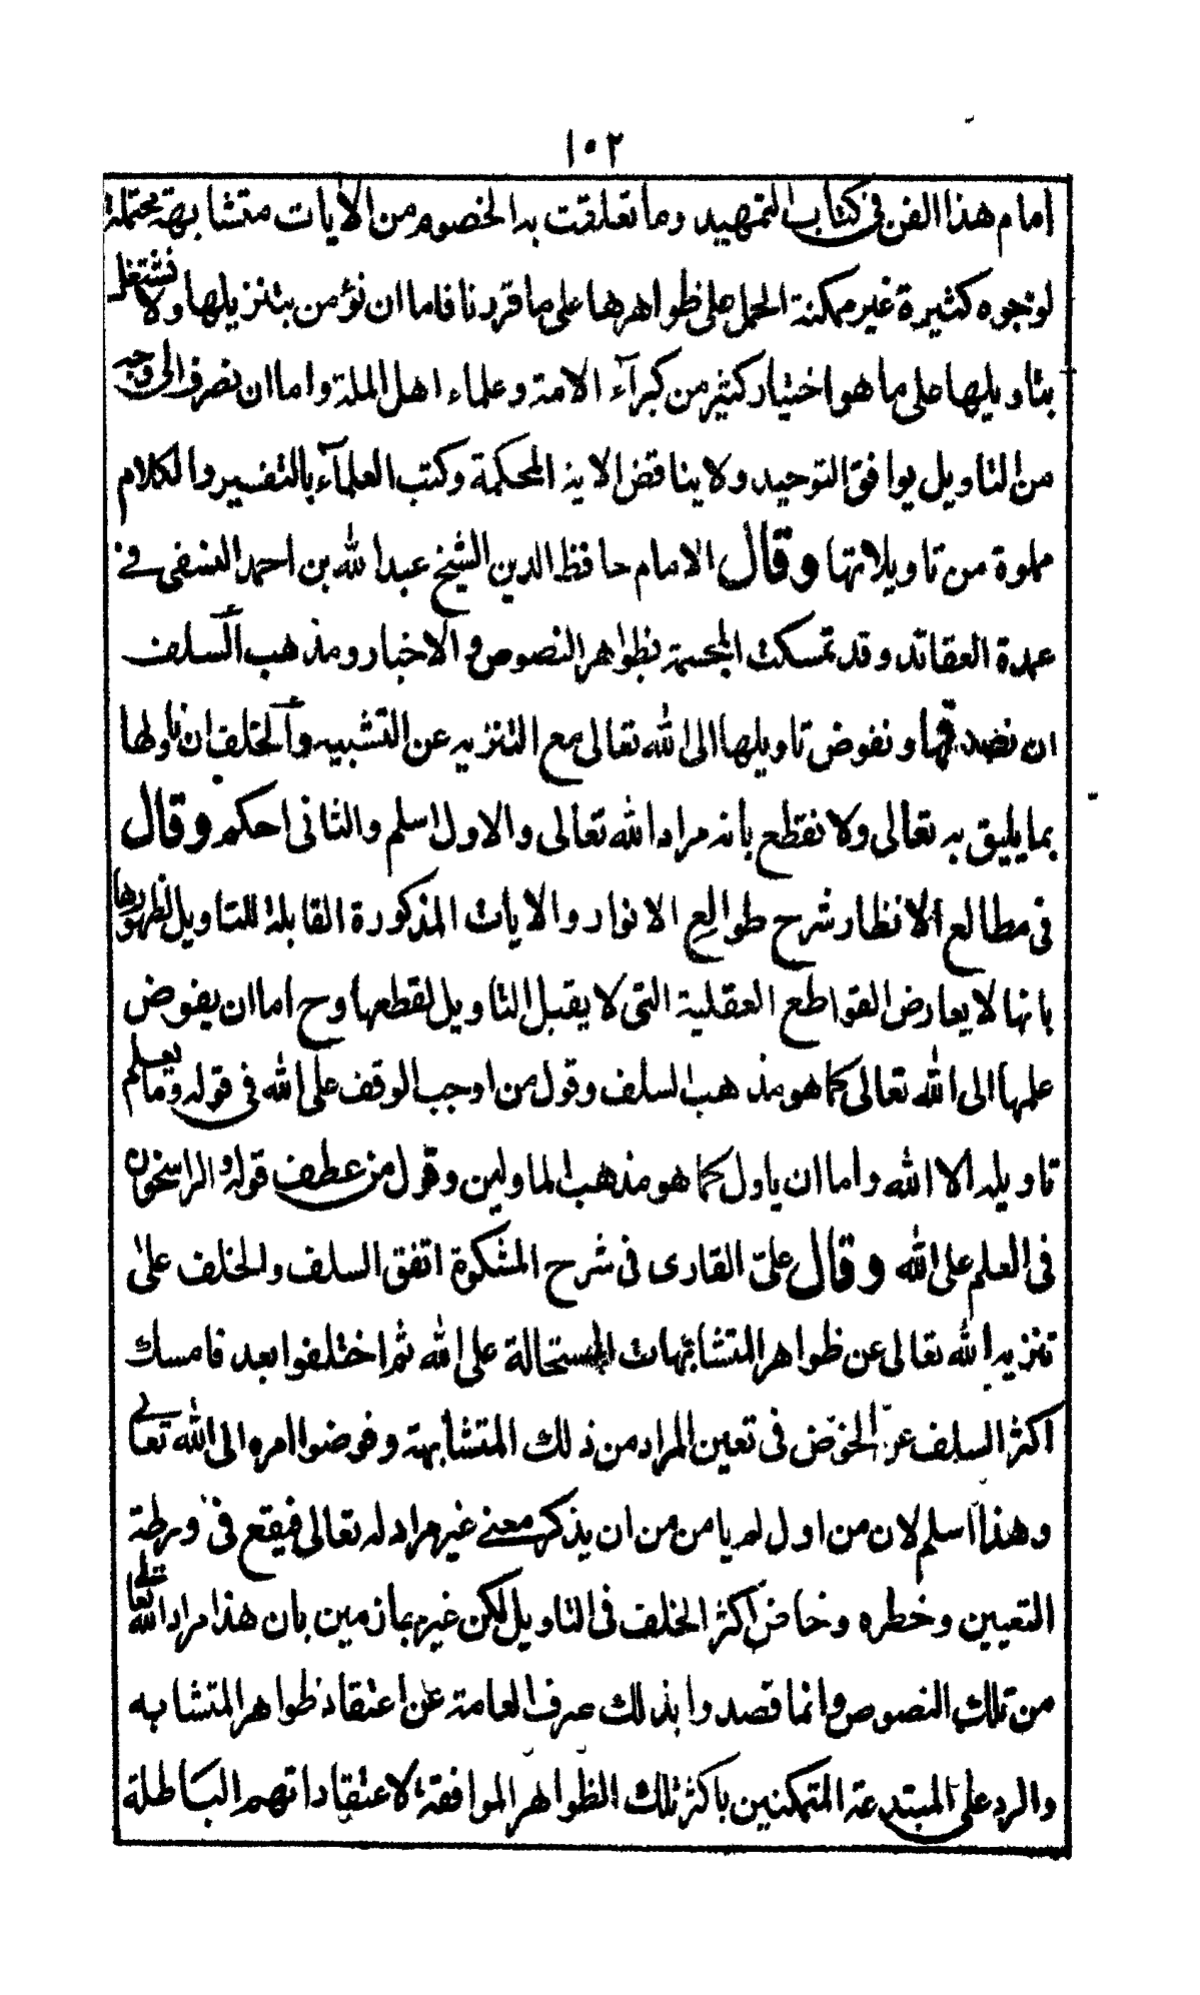 ١٠٢
امام هذا الفن فى كتاب التمهيد وما تعلقت به الخصوم من الآيات متشابهة محتملة
لوجوه كثيرة غير ممكنة الحمل على ظواهرها على ما قررنا فاما ان نؤمن بتنزيلها ولا نشتغل
بتاويلها على ما هو اختيار كثير من كبرآء الامة وعلماء اهل الملة واما ان نصرف الى وجه
من التاويل يوافق التوحيد ولا يناقض الاية المحكمة وكتب العلمآء بالتفسير والكلام
مملوة من تاويلاتها وقال الامام حافظ الدين الشيخ عبد الله بن احمد النسفى فى
عمدة العقائد وقد تمسكت المجسمة بظواهر النصوص و الاخبار ومذهب السلف
ان نصدقها ونفوض تاويلها الى الله تعالى مع التنزيه عن التشبيه والخلف ان ناولها
بما يليق به تعالى ولا نقطع بانه مراد الله تعالى والاول اسلم والثانى احكم وقال
فى مطالع الانظار شرح طوالع الانوار والايات المذكورة القابلة للتاويل لظهورها
بانها لا يعارض القواطع العقلية التى لا يقبل التاويل لقطعها وح اما ان يفوض
علمها الى الله تعالى كما هو مذهب السلف وقول من اوجب الوقف على الله فى قوله وما يعلم
تاويله الا الله واما ان ياول كما هو مذهب الماولين وقول من عطف قوله و الراسخون
فى العلم على الله وقال علىّ القارى فى شرح المشكوة اتفق السلف والخلف على
تنزيه الله تعالى عن ظواهر المتشابهات المستحالة على الله ثم اختلفوا بعد فامسك
اكثر السلف عن الخوض فى تعين المراد من ذلك المتشابهة وفوضوا امره الى الله تعالى
وهذا اسلم لان من اول لم يامن من ان يذكر معنى غير مراد له تعالى فيقع فى ورطة
التعيين وخطره وخاض اكثر الخلف فى التاويل لكن غير جازمين بان هذا مراد الله تعالى
من تلك النصوص وانما قصدوا بذلك صرف العامة عن اعتقاد ظواهر المتشابه
والرد على المبتدعة المتمكنين باكثر تلك الظواهر الموافقة لاعتقاداتهم الباطلة